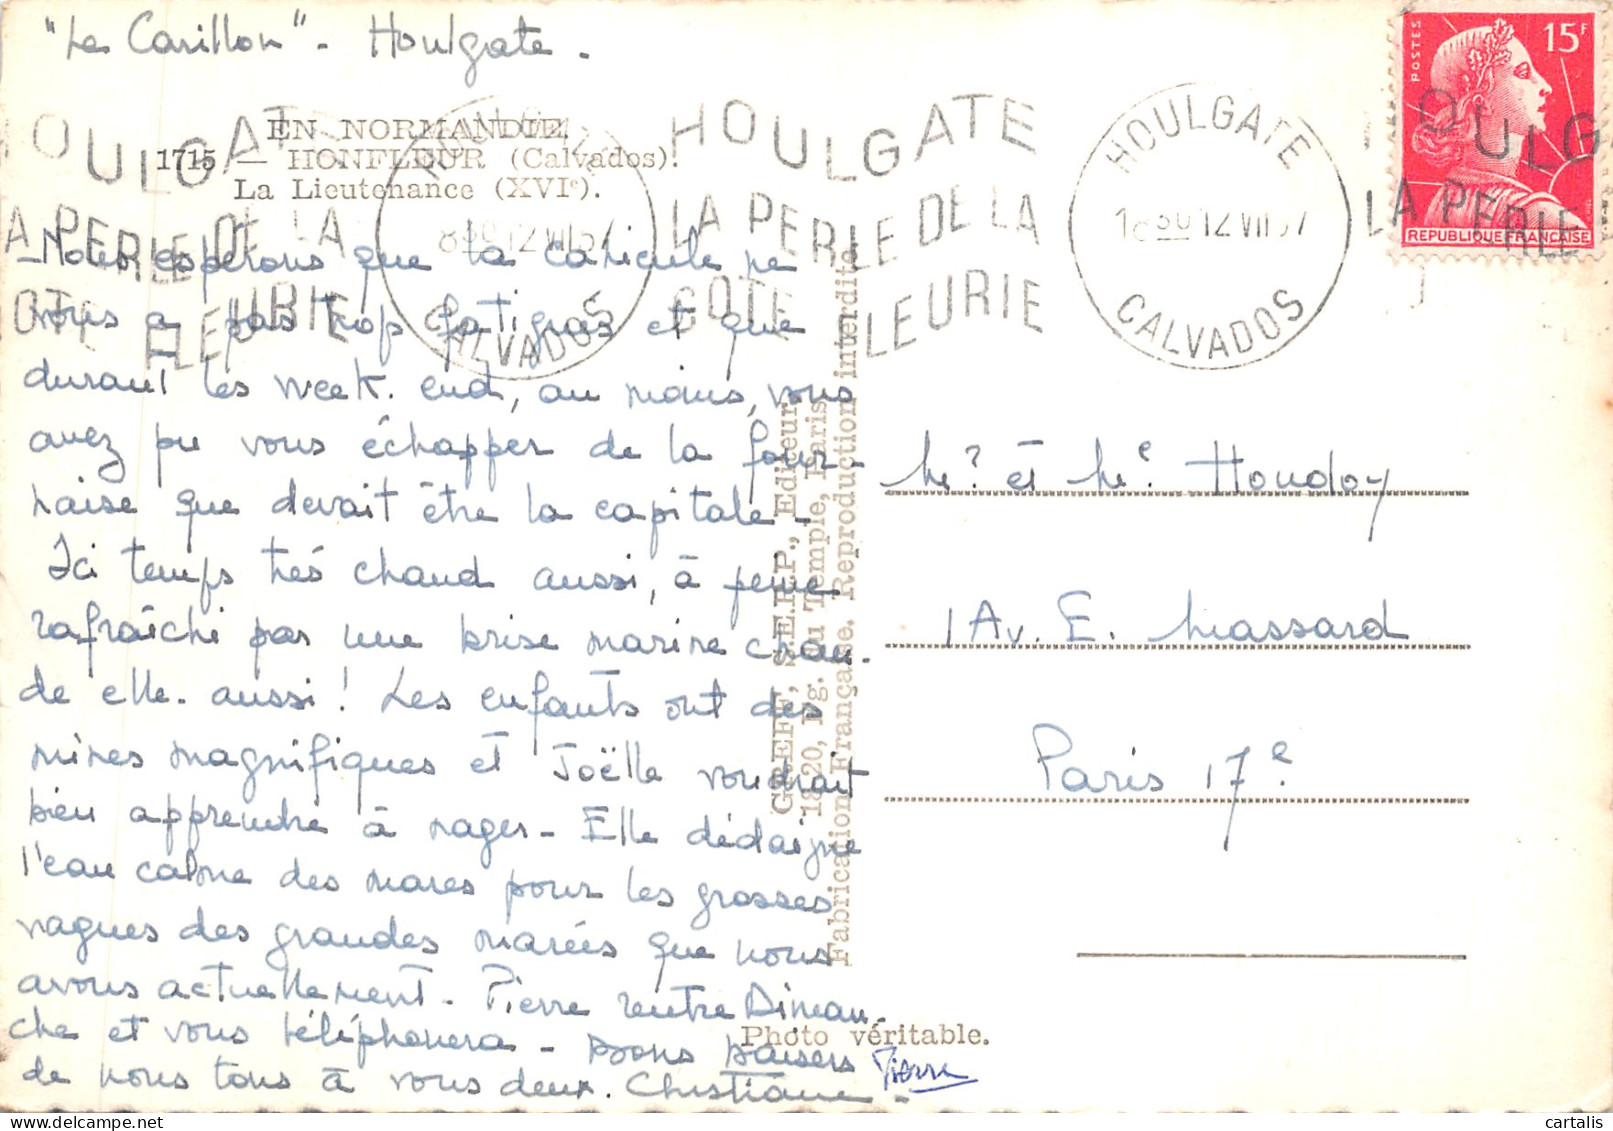 "Le Carillon" - Houlgate -
EN NORMANDIE
1715 — HONFLEUR (Calvados).
La Lieutenance (XVIe).
HOULGATE
LA PERLE DE LA
COTE FLEURIE
HOULGATE
8 30 12 VII 57
CALVADOS
HOULGATE
LA PERLE DE LA
COTE FLEURIE
HOULGATE
18 30 12 VII 57
CALVADOS
OULG
LA PERLE
POSTES
15F
REPUBLIQUE FRANÇAISE
Nous espérons que la canicule ne
vous a pas trop fatigués et que
durant les week-end, au moins, vous
avez pu vous échapper de la four-
naise que devait être la capitale -
Ici temps très chaud aussi, à peine
rafraîchi par une brise marine chau-
de elle-aussi ! Les enfants ont des
mines magnifiques et Joëlle voudrait
bien apprendre à nager - Elle dédaigne
l'eau calme des mares pour les grosses
vagues des grandes marées que nous
avons actuellement - Pierre rentre Diman-
che et vous téléphonera - Bons baisers
de nous tous à vous deux. Christiane -
Pierre
GREFF, S.E.R.P., Editeur
18-20, Fg. du Temple, Paris
Fabrication Française. Reproduction interdite
Photo véritable.
Mr et Me Houdoy
1 Av. E. Massard
Paris 17e
cartalis